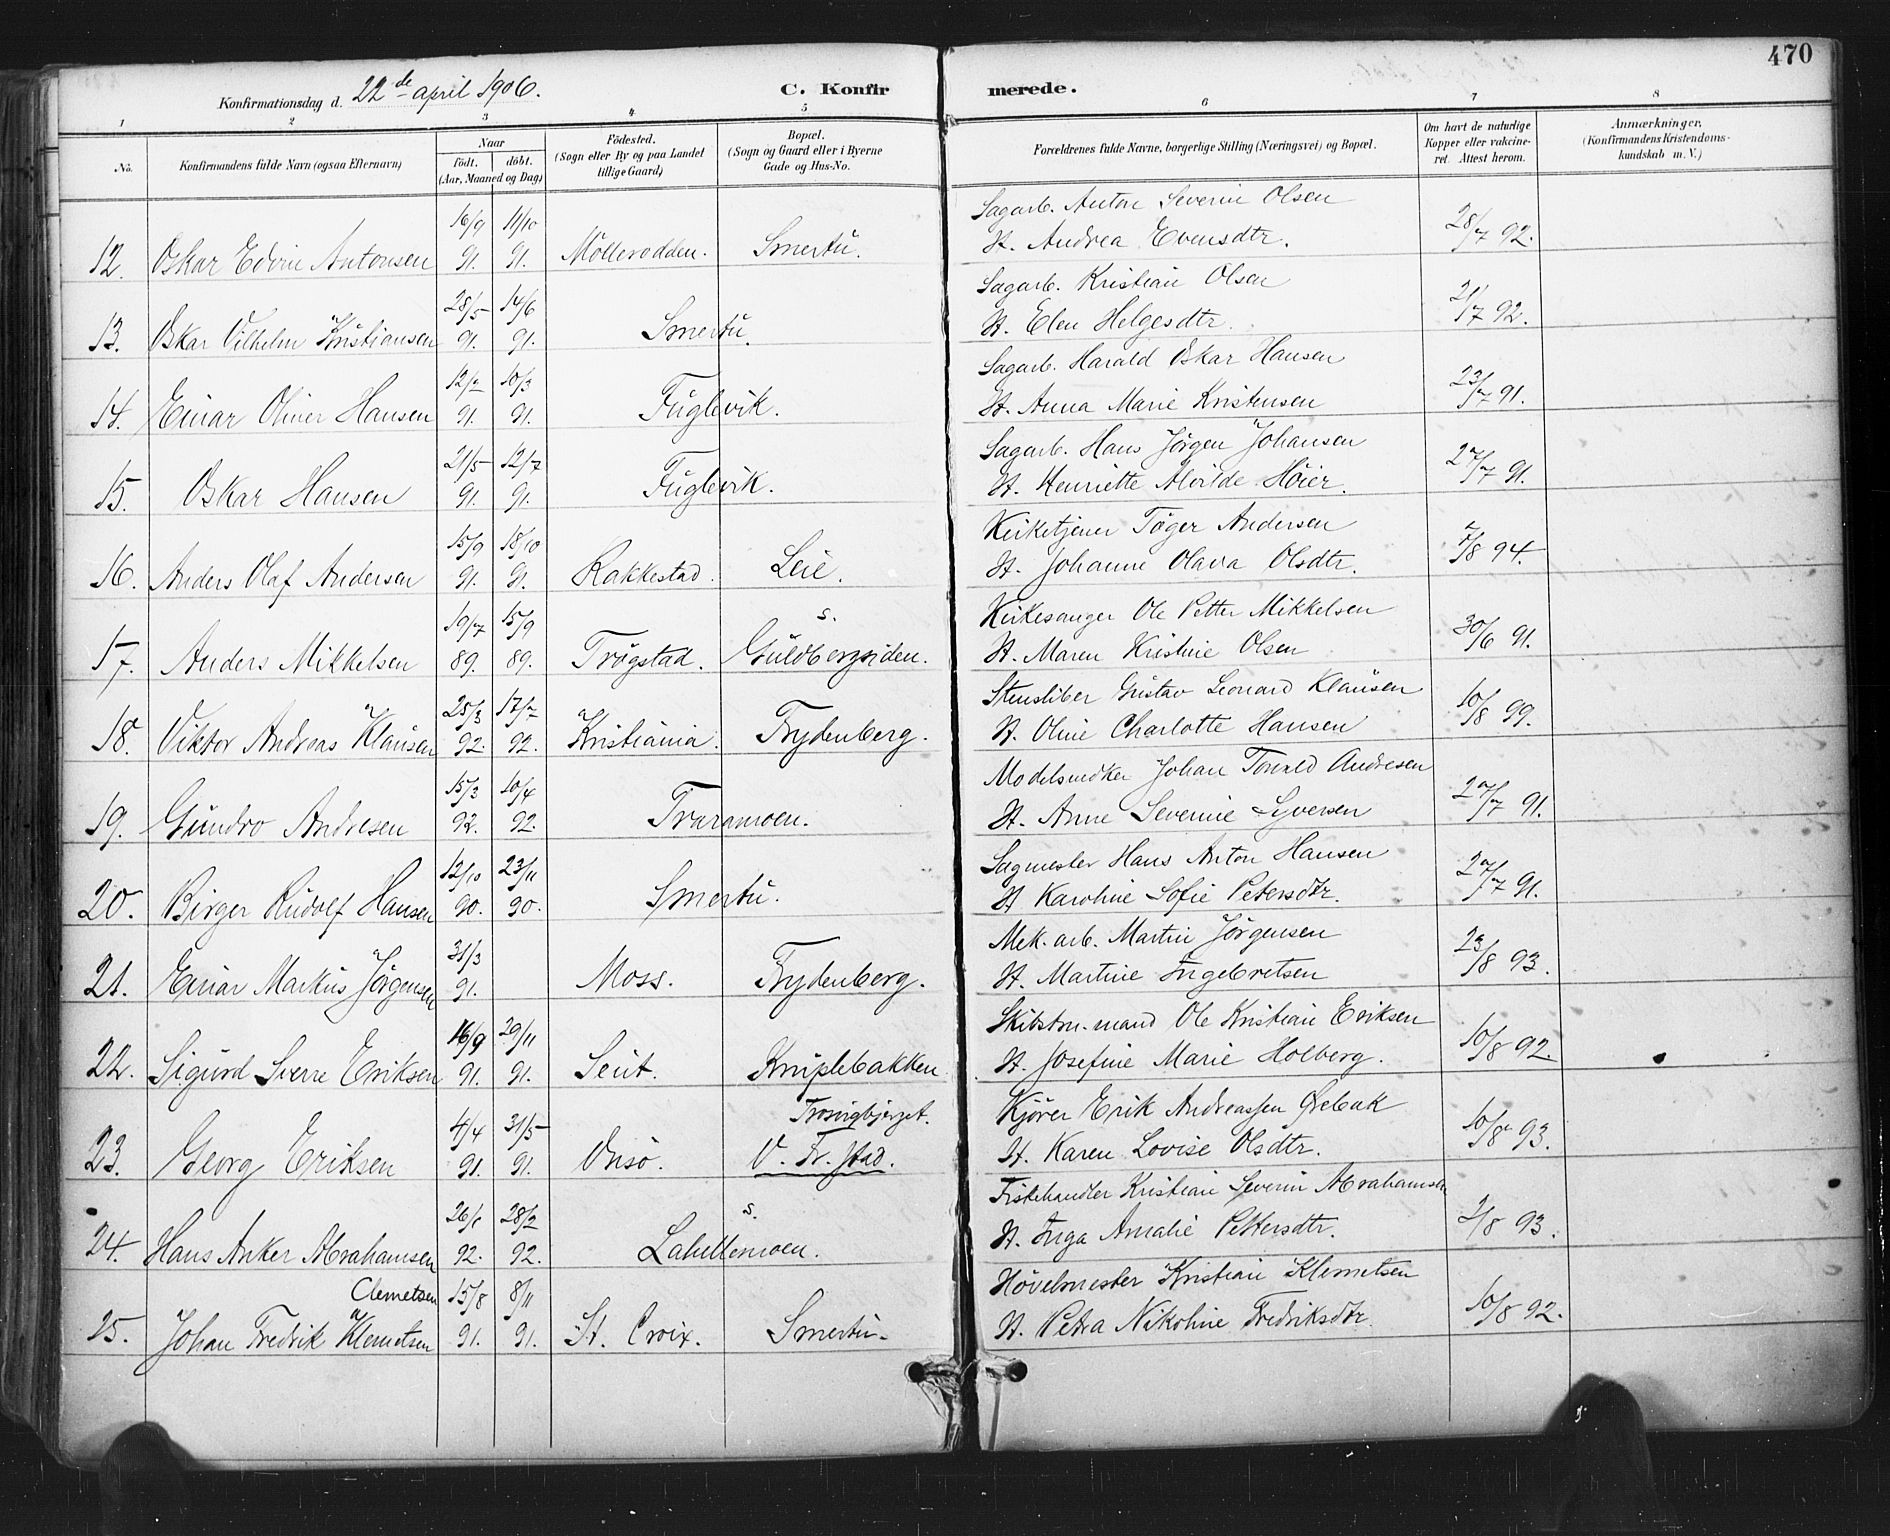 470
Konfirmationsdag d. 22de april 1906. C. Konfirmerede.
1 2 3 4 5 6 7 8
No. Konfirmandens fulde Navn (ogsaa Efternavn) Naar födt. döbt. (Aar, Maaned og Dag) Födested. (Sogn eller By og paa Landet tillige Gaard) Bopæl. (Sogn og Gaard eller i Byerne Gade og Hus-No. Forældrenes fulde Navne, borgerlige Stilling (Næringsvei) og Bopæl. Om havt de naturlige Kopper eller vaccineret. Attest herom. Anmærkninger, (Konfirmandens Kristendomskundskab m. V.)
16/9 11/10 Sagarb. Anton Severin Olsen
12. Oskar Edvin Antonsen 91. 91. Möllerodden. Smertu. H. Andrea Evensdtr. 28/7 92.
28/5 14/6 Sagarb. Kristian Olsen
13. Oskar Vilhelm Kristiansen 91. 91. Smertu. H. Elen Helgesdtr. 21/7 92.
12/2 10/3 Sagarb. Harald Oskar Hansen
14. Einar Oliver Hansen 91. 91. Fuglevik. H. Anna Marie Kristensen 23/7 91.
21/5 12/7 Sagarb. Hans Jörgen Johansen
15. Oskar Hansen 91. 91. Fuglevik. H. Henriette Alvilde Höier. 27/7 91.
15/9 18/10 Kirketjener Töger Andersen
16. Anders Olaf Andersen 91. 91. Rakkestad. Leie. H. Johanne Olava Olsdtr. 7/8 94.
19/7 15/9 s. Kirkesanger Ole Petter Mikkelsen
17. Anders Mikkelsen 89. 89. Trögstad. Guldbergsiden. H. Maren Kristine Olsen 30/6 91.
25/3 17/7 Stensliber Gustav Leonard Klausen
18. Viktor Andreas Klausen 92. 92. Kristiania. Frydenberg. H. Oline Charlotte Hansen 10/8 99.
15/3 10/4 Modelsnedker Johan Torvald Andresen
19. Gundro Andresen 92. 92. Traramoen. H. Anne Severine Syversen 27/7 91.
12/10 23/11 Sagmester Hans Anton Hansen
20. Birger Rudolf Hansen 90. 90. Smertu. H. Karoline Sofie Petersdtr. 27/7 91.
31/3 Mek. arb. Martin Jörgensen
21. Einar Markus Jörgensen 91. Moss. Frydenberg. H. Martine Ingebretsen 23/8 93.
16/9 29/11 Skibstm.mand Ole Kristian Eriksen
22. Sigurd Sverre Eriksen 91. 91. Seut. Kniplebakken H. Josefine Marie Holberg. 10/8 92.
4/4 31/5 Trosvigbjerget. Kjörer Erik Andreassen Örebæk
23. Georg Eriksen 91. 91. Onsö. V. Fr. stad. H. Karen Lovise Olsdtr. 10/8 93.
26/1 28/2 s. Fiskehandler Kristian Severin Abrahamsen
24. Hans Anker Abrahamsen 92. 92. Lahellemoen. H. Inga Amalie Pettersdtr. 2/8 93.
Clemetsen 15/8 8/11 Hövelmester Kristian Klemetsen
25. Johan Fredrik Klemetsen 91. 91. St. Croix. Smertu. H. Petra Nikoline Fredriksdtr. 10/8 92.